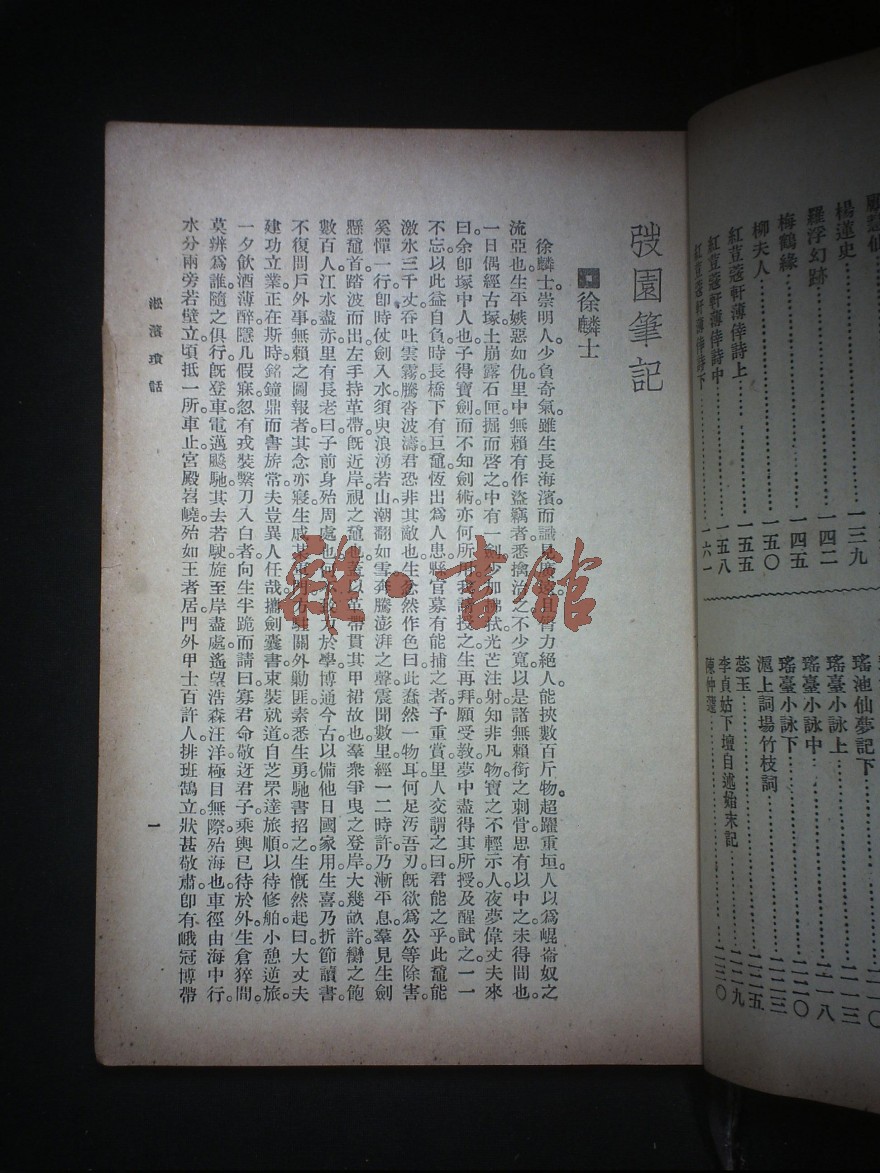 瑤池仙夢記下
瑤臺小詠上
瑤臺小詠中
瑤臺小詠下
滬上詞場竹枝詞
蕊玉
李貞姑下壇自述始末記
陳仲蘧
一一三
一一八
一二〇
一二三
一二五
一二九
一三〇
楊蓮史 一三九
羅浮幻跡 一四二
梅鶴緣 一四五
柳夫人 一五〇
紅荳蔻軒薄倖詩上 一五五
紅荳蔻軒薄倖詩中 一五八
紅荳蔻軒薄倖詩下 一六一
弢園筆記
徐麟士
徐麟士崇明人。少負奇氣。雖生長海濱而識見廣遠。且膂力絕人。能挾數百斤物。超躍重垣。人以爲崐崙奴之
流亞也。生平嫉惡如仇。里中無賴有作盜竊者。悉擒治之不少寬。以是諸無賴銜之刺骨。思有以中之。未得間也。
一日偶經古塚。土崩露石匣。掘而啓之。中有一劍。少加拂拭。光芒注射。知非凡物。寶之不輕示人。夜夢偉丈夫來
曰。余卽塚中人也。子得寶劍而不知劍術。亦何所用。我請授之。生再拜願受敎。夢中盡得其所授。及醒試之。一一
不忘。以此益自負。時長橋下有巨黿。恆出爲人患。縣官募有能捕之者。予重賞。里人交謂之曰。君能之乎。此黿能
激水三千丈。吞吐雲霧。騰沓波濤。君恐非其敵也。生忿然作色曰。此蠢然一物耳。何足汚吾刃。旣欲爲公等除害
奚憚一行。卽時仗劍入水。須臾浪湧若山。潮翻如雪。奔騰澎湃之聲。震聞數里。經一二時許。乃漸平息。羣見生劍
懸黿首。踏波而出。左手持革帶。旣近岸視之。黿也。蓋以革帶貫其甲裙故也。羣衆爭曳之登岸。大幾畝許。臠之飽
數百人。江水盡赤。里有長老曰。子前身殆周處也。何不致力於學。博通今古。以備他日國家用。生喜乃折節讀書
不復問戶外事。無賴之圖報者。其念亦寢。生戚某
建功立業。正在斯時。銘鐘鼎而書旂常。夫豈異人任哉。攜劍囊書。束裝就道。自芝罘達旅順。以待修舶。小憩逆旅。
一夕飲酒薄醉。隱几假寐。忽有戎裝繫刀入白者。向生半跪而請曰。寡君命敬迓君子。乘輿已待於外。生倉猝間。
莫辨爲誰。隨之俱行。旣登車。電邁飈馳。其去若駛。旋至岸盡處。遙望浩淼汪洋。極目無際。殆海也。車徑由海中行。
水分兩旁若壁立。頃抵一所。車止。宮殿岧嶢。殆如王者居。門外甲士百許人。排班鵠立。狀甚敬肅。卽有峨冠博帶
淞濱瑣話
一
雜·書館